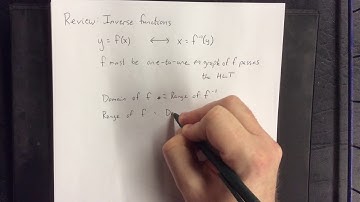 Review Inverse functions
y = f(x) ⟷ x = f⁻¹(y)
f must be one-to-one ⟺ graph of f passes
the HLT
Domain of f = Range of f⁻¹
Range of f = D